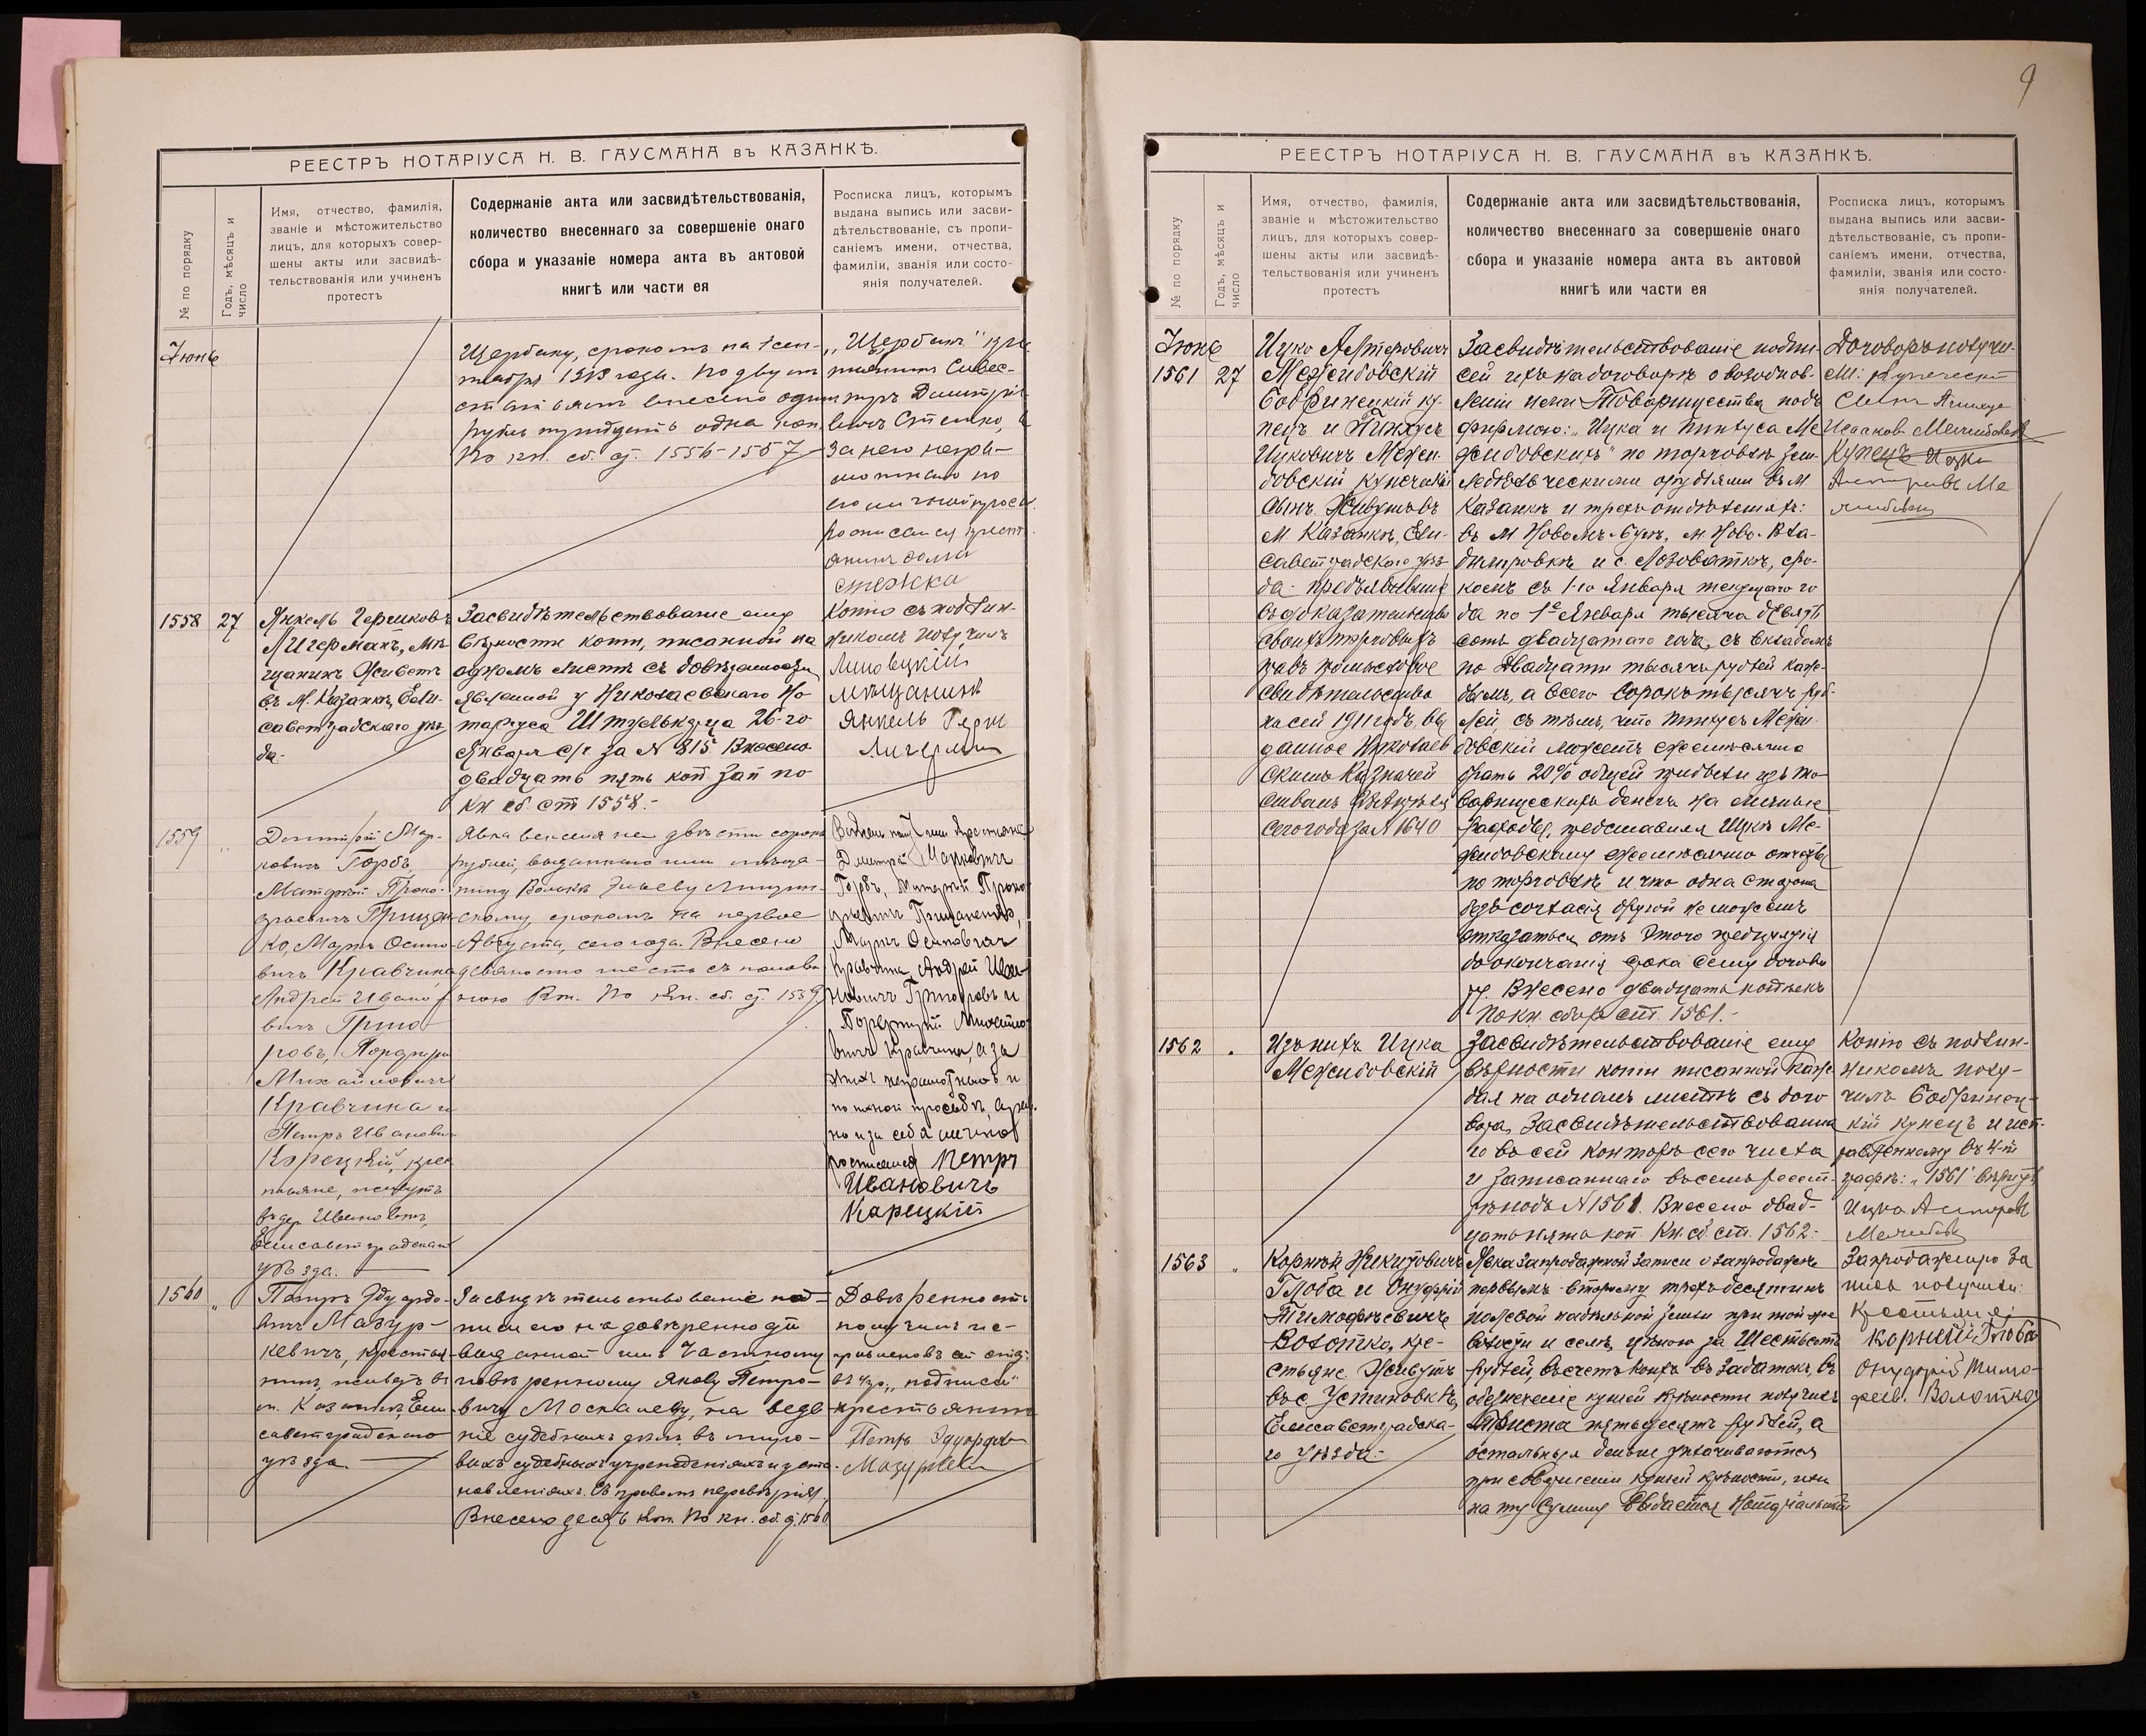 РЕЕСТРЪ НОТАРІУСА Н. В. ГАУСМАНА въ КАЗАНКѢ.
№ по порядку
Годъ, мѣсяцъ и
число
Имя, отчество, фамилія,
званіе и мѣстожительство
лицъ, для которыхъ совер-
шены акты или засвидѣ-
тельствованія или учиненъ
протестъ
Содержаніе акта или засвидѣтельствованія,
количество внесеннаго за совершеніе онаго
сбора и указаніе номера акта въ актовой
книгѣ или части ея
Росписка лицъ, которымъ
выдана выпись или засви-
дѣтельствованіе, съ пропи-
саніемъ имени, отчества,
фамиліи, званія или состо-
янія получателей.
Іюнь
Щербину, срокомъ на 1 сен-
тября 1913 года. По двумъ
статьямъ внесено одинъ
рубль тридцать одна коп.
По кн. сб. ст. 1556-1557
за него негра-
мотнаго по
его личной просьбѣ
росписался крест
янинъ
1558
27
Янкель Гершковъ
Лигерманъ, мѣ-
щанинъ живетъ
въ М. Казанкѣ, Ели-
саветградскаго уѣз
да-
Засвидѣтельствованіе ему
вѣрности копіи, писанной на
одномъ листѣ съ довѣренности
явленной у Николаевскаго Но-
таріуса 26-го
Января с/г за № 815 Внесено
двадцать пять коп. Зап по
кн сб ст 1558.-
Копію съ подлин-
никомъ получилъ
мѣщанинъ
Янкель Герш
Лигерман
1559
"
Дмитрій Мар-
ковичъ Горбъ,
Матвѣй Проко-
фьевичъ Грицен
ко, Маркъ Осипо
вичъ Кравчина,
Андрей Ивано
вичъ Григо
ровъ, Порфирій
Михайловичъ
Кравчина и
Петръ Иванович
Корецкій, крес
тьяне, живутъ
въ дер. Ивановкѣ,
Елисаветградскаго
уѣзда.
Явка векселя на двѣсти сорокъ
рублей, выданнаго ими мѣща-
нину
скому, срокомъ на первое
Августа, сего года. Внесено
девяносто шесть съ полови
ною коп. По кн. сб. ст. 1559
Вексель получили крестьяне
Дмитрій Марковичъ
Горбъ, Матвѣй Проко
фьевичъ Гриценко,
Маркъ Осиповичъ
Кравчина, Андрей Ива-
новичъ Григоровъ и
Порфирій Михайло
вичъ Кравчина, а за
нихъ неграмотныхъ и
по личной просьбѣ, а рав
но и за себя лично
росписался Петръ
Ивановичъ
Карецкій
1560
"
Петръ Эдуардо-
вичъ Мазур-
кевичъ, крестья-
нинъ, живетъ въ
м. Казанкѣ, Ели
саветградскаго
уѣзда.
Засвидѣтельствованіе под-
писи его на довѣренности
выданной имъ Частному
повѣренному Якову Петро-
вичу Москалеву, на веде
ніе судебныхъ дѣлъ въ миро-
выхъ судебныхъ учрежденіяхъ и уста-
новленіяхъ. Съ правомъ передовѣрія.
Внесено десять коп. По кн. сб. ст. 1560
Довѣренность
получилъ
въ гр. „подписи"
крестьянинъ
Петръ Эдуардов
Мазуркевич
9
РЕЕСТРЪ НОТАРІУСА Н. В. ГАУСМАНА въ КАЗАНКѢ.
№ по порядку
Годъ, мѣсяцъ и
число
Имя, отчество, фамилія,
званіе и мѣстожительство
лицъ, для которыхъ совер-
шены акты или засвидѣ-
тельствованія или учиненъ
протестъ
Содержаніе акта или засвидѣтельствованія,
количество внесеннаго за совершеніе онаго
сбора и указаніе номера акта въ актовой
книгѣ или части ея
Росписка лицъ, которымъ
выдана выпись или засви-
дѣтельствованіе, съ пропи-
саніемъ имени, отчества,
фамиліи, званія или состо-
янія получателей.
Іюнь
1561
27
Ицко
Межибовскій
Бобринецкій ку-
пецъ и Пинхусъ
Ицковичъ Межи-
бовскій купеческій
сынъ. Живутъ въ
М. Казанкѣ, Ели-
саветградскаго уѣз
да- предъявившіе
въ доказательство
своихъ торговыхъ
правъ промысловое
свидѣтельство
на сей 1911 годъ, вы
данное Николаев
скимъ Казначей
ствомъ
сего года за № 1640
Засвидѣтельствованіе подпи-
сей ихъ на договорѣ о возобнов-
леніи ими Товарищества подъ
фирмою: „Ицка и Пинхуса Ме
жибовскихъ" по торговлѣ зем-
ледѣльческими орудіями въ М
Казанкѣ и трехъ отдѣленіяхъ:
въ М Новомъ-Бугѣ, м. Ново-Вла-
димировкѣ и с. Лозоваткѣ, сро-
комъ съ 1-го Января текущаго го
да по 1е Января тысяча девять
сотъ двадцатаго года, съ вкладомъ
по двадцати тысячъ рублей каж-
дымъ, а всего сорокъ тысячъ руб-
лей съ тѣмъ, что Пинхусъ Межи-
бовскій можетъ ежемѣсячно
брать 20% общей прибыли изъ то
варищескихъ денегъ на личные
расходы, представляя Ицкѣ Ме-
жибовскому ежемѣсячно отчеты
по торговлѣ и что одна сторона
безъ согласія другой не можетъ
отказаться отъ этого предпріятія
до окончанія срока сему догово
ру. Внесено двадцать копѣекъ
По кн. сбор. ст. 1561.-
Договоръ получи-
ли: купеческій
сынъ Пинхус
Купецъ Ицко
1562
"
Изъ нихъ Ицка
Межибовскій
Засвидѣтельствованіе ему
вѣрности копіи писанной каж
дая на одномъ листѣ съ дого
вора, засвидѣтельствованна
го въ сей конторѣ сего числа
и записаннаго въ семъ реест-
рѣ подъ № 1561. Внесено двад-
цать пять коп. Кн. сб. ст. 1562.-
Копію съ подлин-
никомъ полу-
чилъ Бобринец-
кій купецъ и исп-
равленному въ 4-й
графѣ: „1561" вѣрить
Ицко
1563
"
Корній Никитовичъ
Глоба и Онуфрій
Тимофѣевичъ
Волотко, кре-
стьяне. Живутъ
въ с. Устиновкѣ,
Елисаветградска-
го уѣзда.-
Явка запродажной записи о запродажѣ
первымъ второму трехъ десятинъ
полевой надѣльной земли при той же
волости и селѣ, цѣною за шестьсотъ
рублей, въ счетъ коихъ въ задатокъ, въ
обезпеченіе купчей крѣпости получилъ
триста пятьдесятъ рублей, а
остальныя деньги уплачиваются
при совершеніи купчей крѣпости, или
на ту сумму выдается нотаріальный
Запродажную за
пись получили:
Крестьяне:
Корній Глоба
Онуфрій Тимо-
феев. Волотко